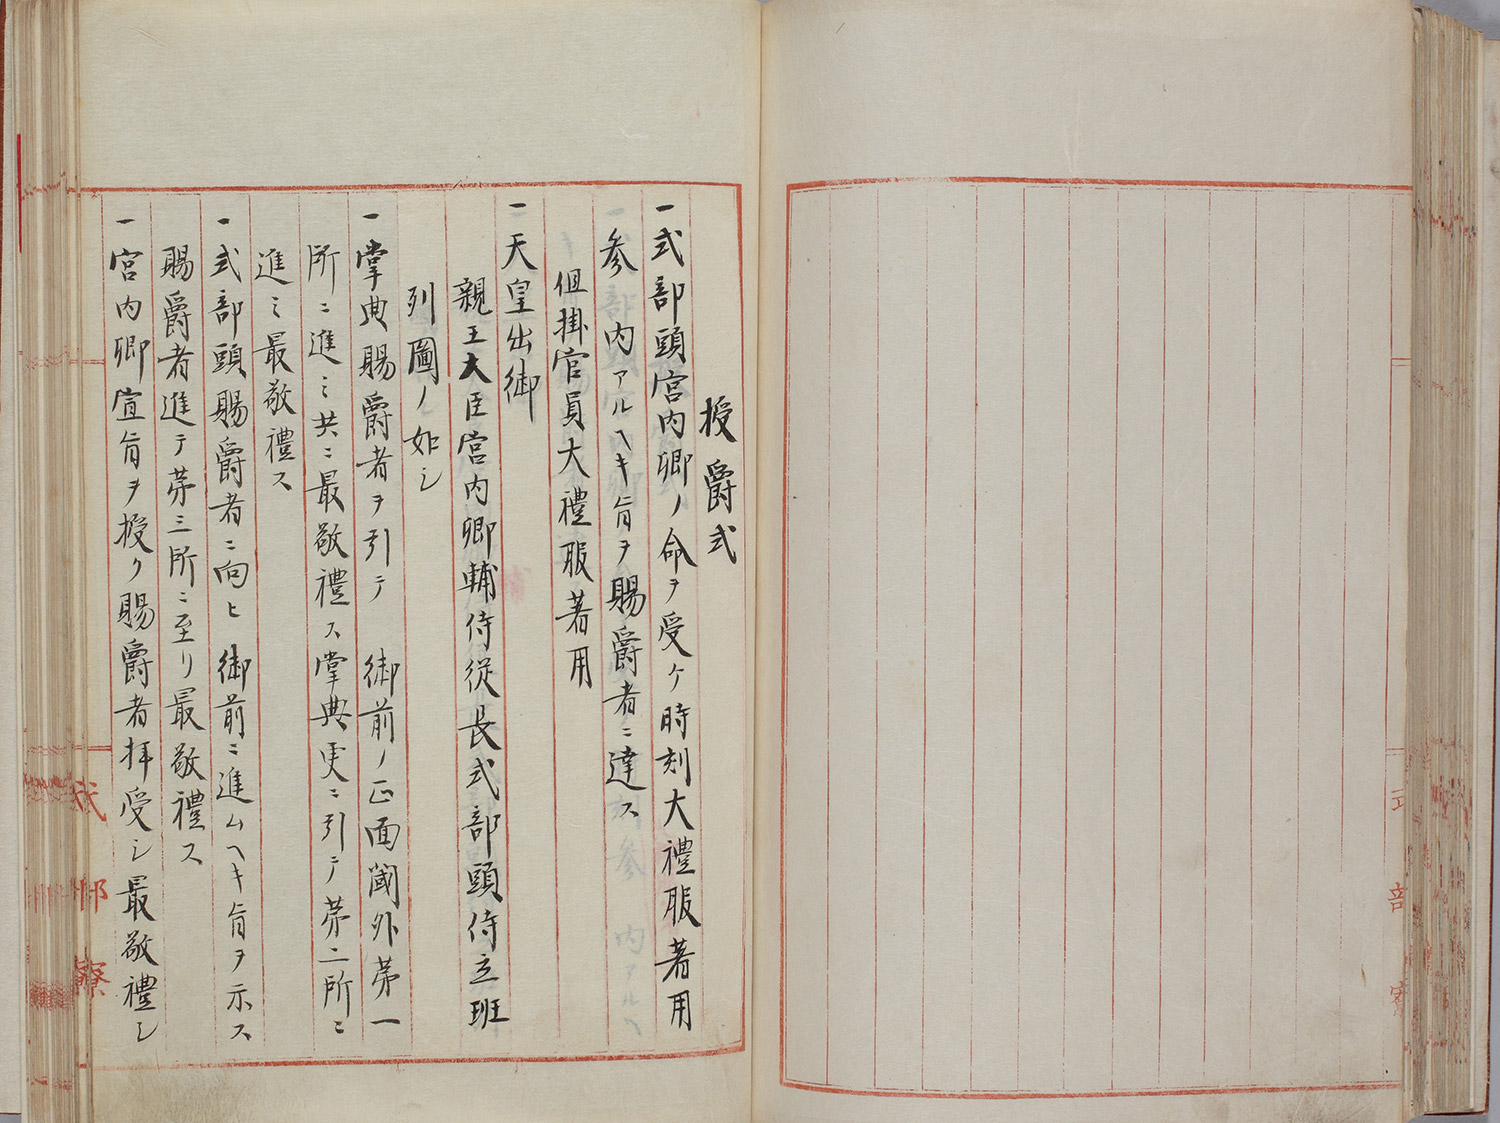 授爵式
一式部頭宮内卿ノ命ヲ受ケ時刻大禮服著用
參内アルヘキ旨ヲ賜爵者ニ達ス
但掛官員大禮服著用
一天皇出御
親王大臣宮内卿輔侍從長式部頭侍立班
列圖ノ如シ
一掌典賜爵者ヲ引テ 御前ノ正面閾外第一
所ニ進ミ共ニ最敬禮ス掌典更ニ引テ第二所ニ
進ミ最敬禮ス
一式部頭賜爵者ニ向ヒ 御前ニ進ムヘキ旨ヲ示ス
賜爵者進テ第三所ニ至リ最敬禮ス
一宮内卿宣旨ヲ授ク賜爵者拝受シ最敬禮シ
式部寮